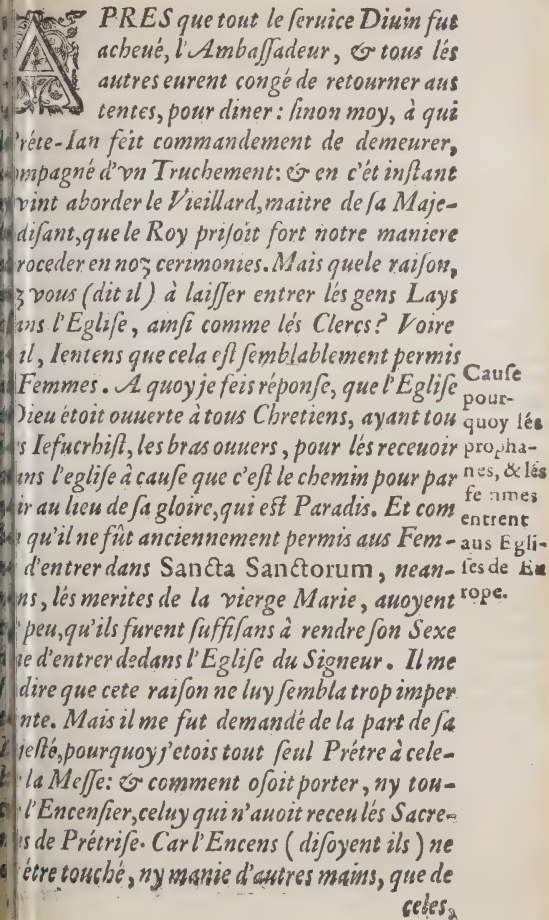 APRES que tout le ſeruice Diuin fut
acheué, l'Ambaſſadeur, & tous lés
autres eurent congé de retourner aus
tentes, pour diner: ſinon moy, à qui
réte-Ian feit commandement de demeurer,
mpagné d'vn Truchement: & en c'ét inſtant
vint aborder le Vieillard, maitre de ſa Maje-
diſant, que le Roy priſoit fort notre maniere
roceder en noz cerimonies. Mais quele raiſon,
z vous (dit il) à laiſſer entrer lés gens Lays
ans l'Egliſe, ainſi comme lés Clercs? Voire
il, Ientens que cela eſt ſemblablement permis
Femmes. A quoy je feis réponſe, que l'Egliſe
Dieu étoit ouuerte à tous Chretiens, ayant tou
s Ieſucrhiſt, les bras ouuers, pour lés receuoir
ans l'egliſe à cauſe que c'eſt le chemin pour par
ir au lieu de ſa gloire, qui eſt Paradis. Et com
qu'il ne fût anciennement permis aus Fem-
d'entrer dans Sancta Sanctorum, nean-
ns, lés merites de la vierge Marie, auoyent
peu, qu'ils furent ſuffiſans à rendre ſon Sexe
ne d'entrer dedans l'Egliſe du Signeur. Il me
dire que cete raiſon ne luy ſembla trop imper
nte. Mais il me fut demandé de la part de ſa
jeſté, pourquoy j'etois tout ſeul Prétre à cele-
la Meſſe: & comment oſoit porter, ny tou-
l'Encenſier, celuy qui n'auoit receu lés Sacre-
s de Prétriſe. Car l'Encens (diſoyent ils) ne
étre touché, ny manie d'autres mains, que de
celes,
Cauſe
pour-
quoy lés
propha-
nes, & lés
femmes
entrent
aus Egli-
ſes de Eu
rope.